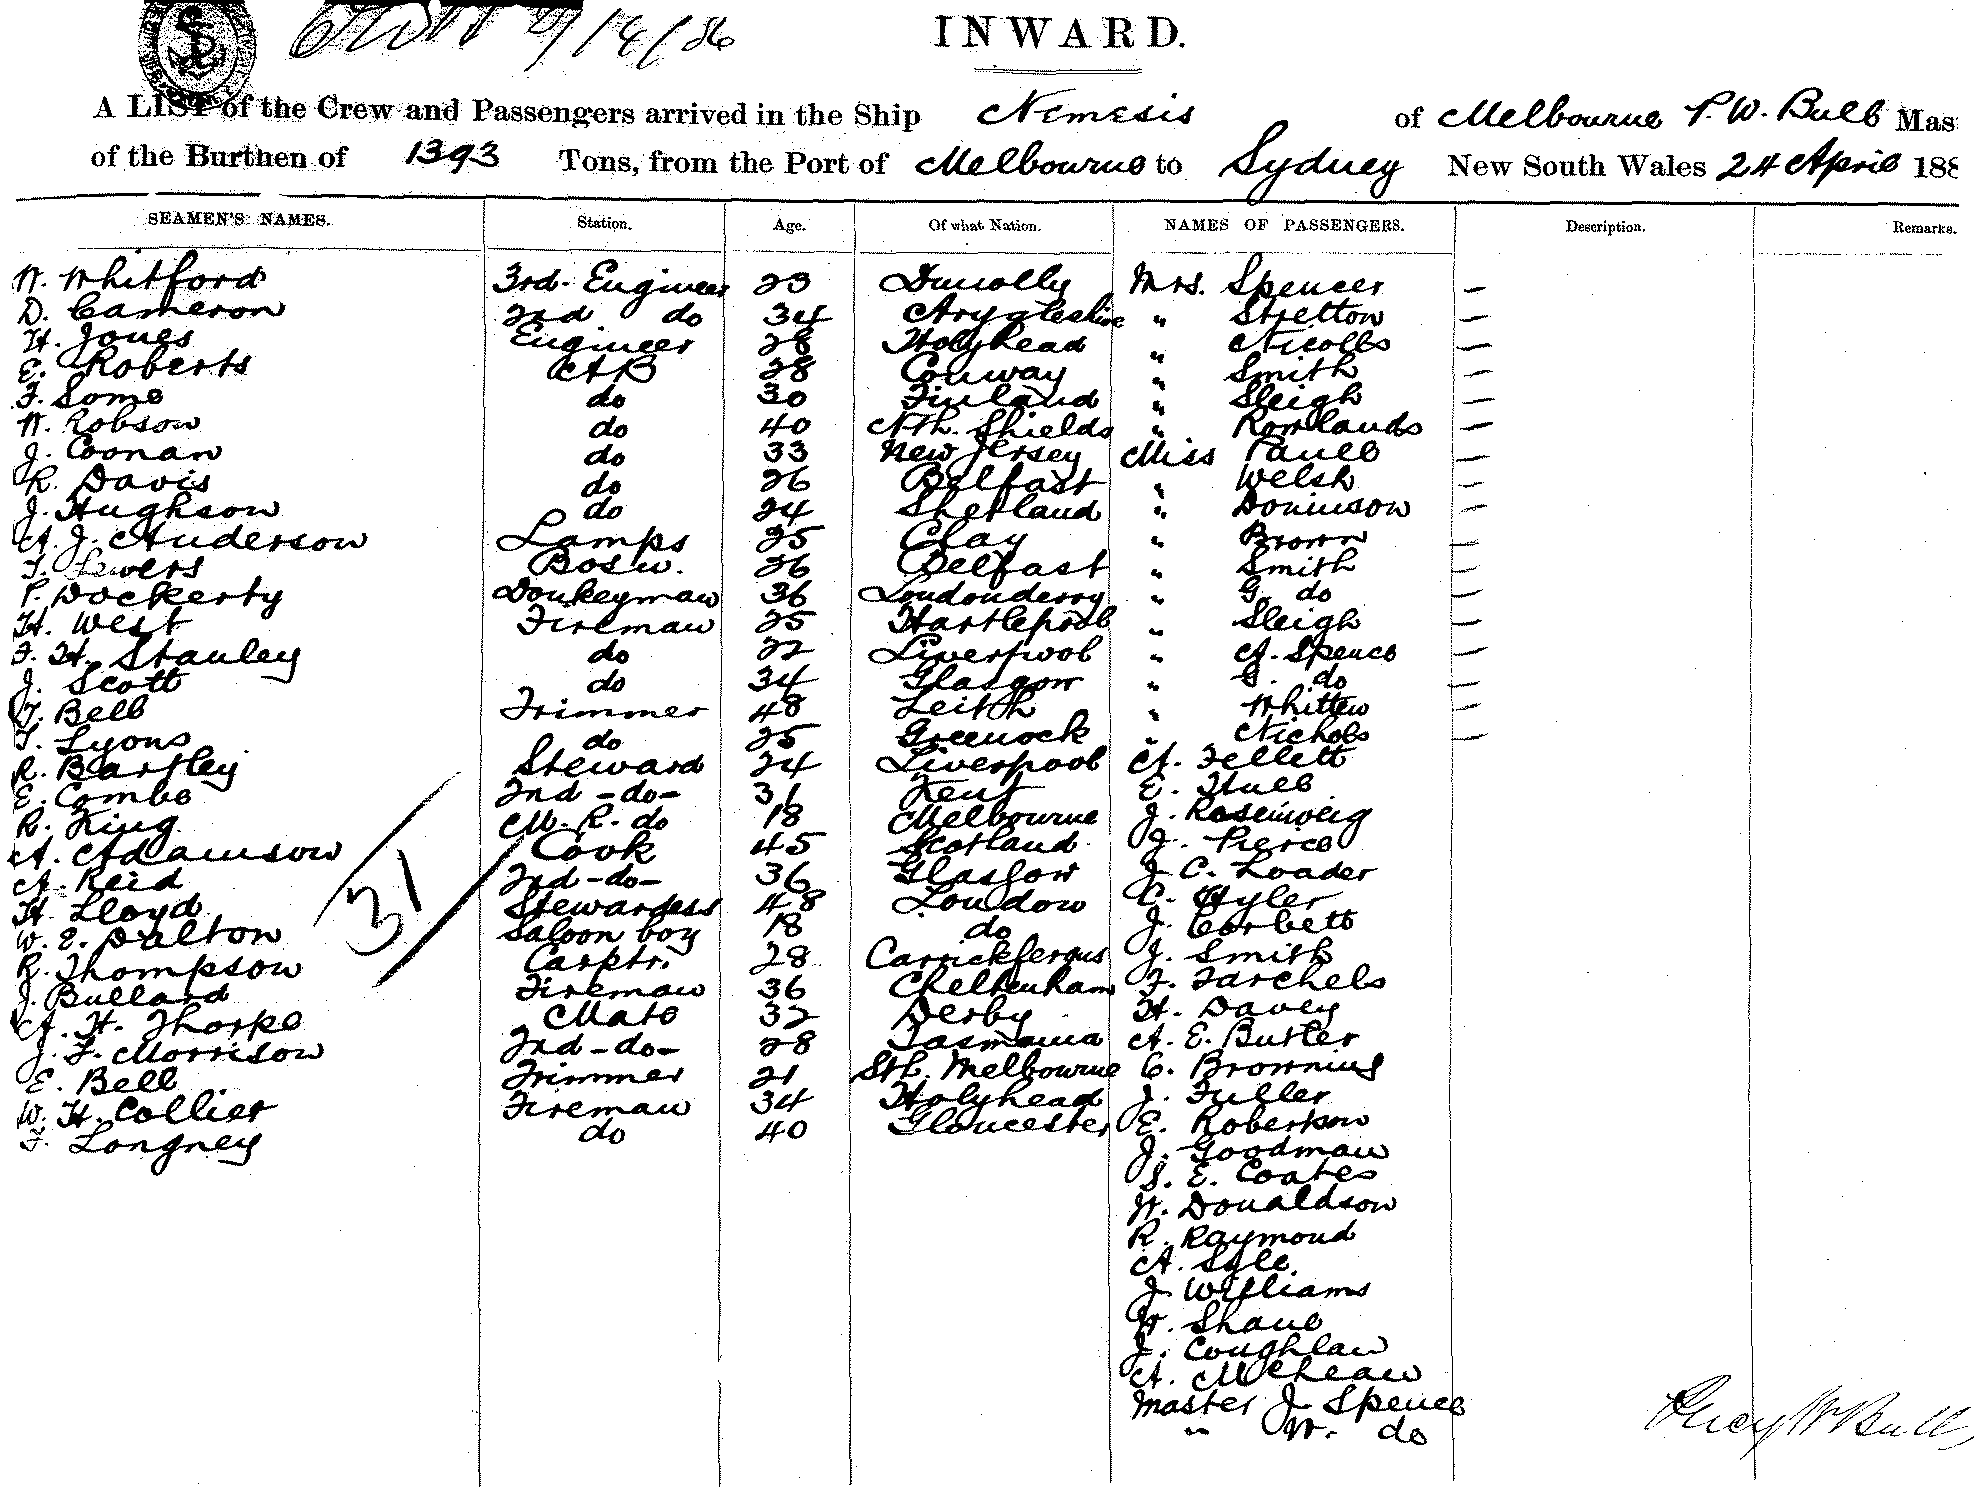 INWARD.
A LIST of the Crew and Passengers arrived in the Ship Nemesis of Melbourne P. W. Bull Mas
of the Burthen of 1393 Tons, from the Port of Melbourne to Sydney New South Wales 24 April 188
SEAMEN'S NAMES. Station. Age. Of what Nation. NAMES OF PASSENGERS. Description. Remarks.
W. Whitford 3rd. Engineer 23 Dunolly Mrs. Spencer —
D. Cameron 2nd do 34 Argyleshire " Stretton —
H. Jones Engineer 28 Holyhead " Nicolls —
E. Roberts AB 28 Conway " Smith —
F. Somo do 30 Finland " Sleigh —
W. Robson do 40 Nth. Shields " Rowlands —
J. Coonan do 33 New Jersey Miss Paull —
R. Davis do 26 Belfast " Welsh —
J. Hughson do 24 Shetland " Doninson —
A. J. Anderson Lamps 25 Clay " Brown —
T. Sewers Bosn. 26 Belfast " Smith —
P. Dockerty Donkeyman 36 Londonderry " G. do —
H. West Fireman 25 Hartlepool " Sleigh —
F. H. Stanley do 22 Liverpool " A. Spence —
J. Scott do 34 Glasgow " G. do —
T. Bell Trimmer 48 Leith " Whitten —
T. Lyons do 25 Greenock " Nichols —
R. Bartley Steward 24 Liverpool A. Fellett
E. Combe 2nd -do- 31 Kent E. Hull
R. King M. R. do 18 Melbourne J. Rosenweig
A. Adamson Cook 45 Scotland J. Pierce
A. Reid 2nd -do- 36 Glasgow J. C. Loader
H. Lloyd Stewardess 48 London C. Hyler
W. E. Dalton Saloon boy 18 do J. Corbett
R. Thompson Carptr. 28 Carrickfergus J. Smith
J. Bullard Fireman 36 Cheltenham F. Tarchels
A. H. Thorpe Mate 32 Derby H. Davey
J. F. Morrison 2nd -do- 28 Tasmania A. E. Butler
E. Bell Trimmer 21 Sth. Melbourne C. Browning
W. H. Collier Fireman 34 Holyhead J. Fuller
F. Longney do 40 Gloucester E. Robertson
31
J. Goodman
S. E. Coates
W. Donaldson
R. Raymond
A. Syle
J. Williams
W. Shane
J. Coughlan
A. McLean
Master J. Spence
" W. do
Percy W Bull